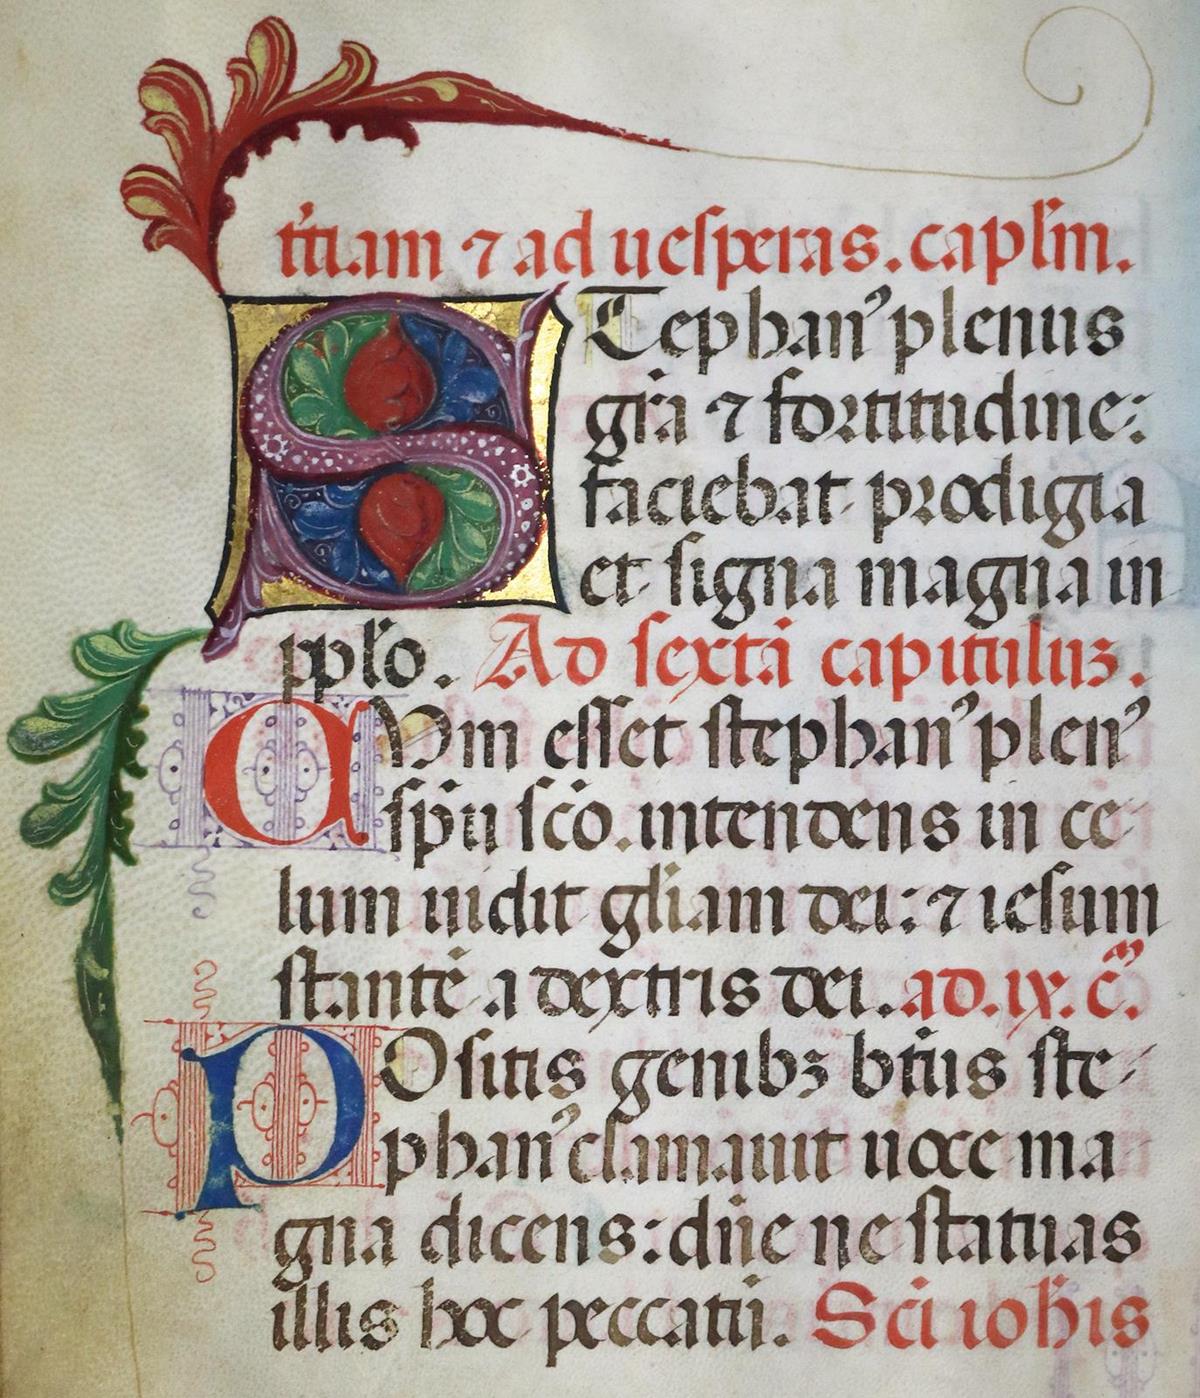 t'tiam ⁊ ad uesperas. capl'm.
STephanꝰ plenus
gr̄a ⁊ fortitudine:
faciebat prodigia
et signa magna in
ppl'o. Ad sextā capituluʒ.
CUm esset stephanꝰ plenꝰ
sp̄u sc̄o. intendens in ce
lum uidit gl̄iam dei: ⁊ iesum
stantē a dextris dei. ad. ix. c̄.
POsitis genibʒ bt̄us ste
phanꝰ clamauit uoce ma
gna dicens: dn̄e ne statuas
illis hoc peccatū. Sc̄i ioh̄is